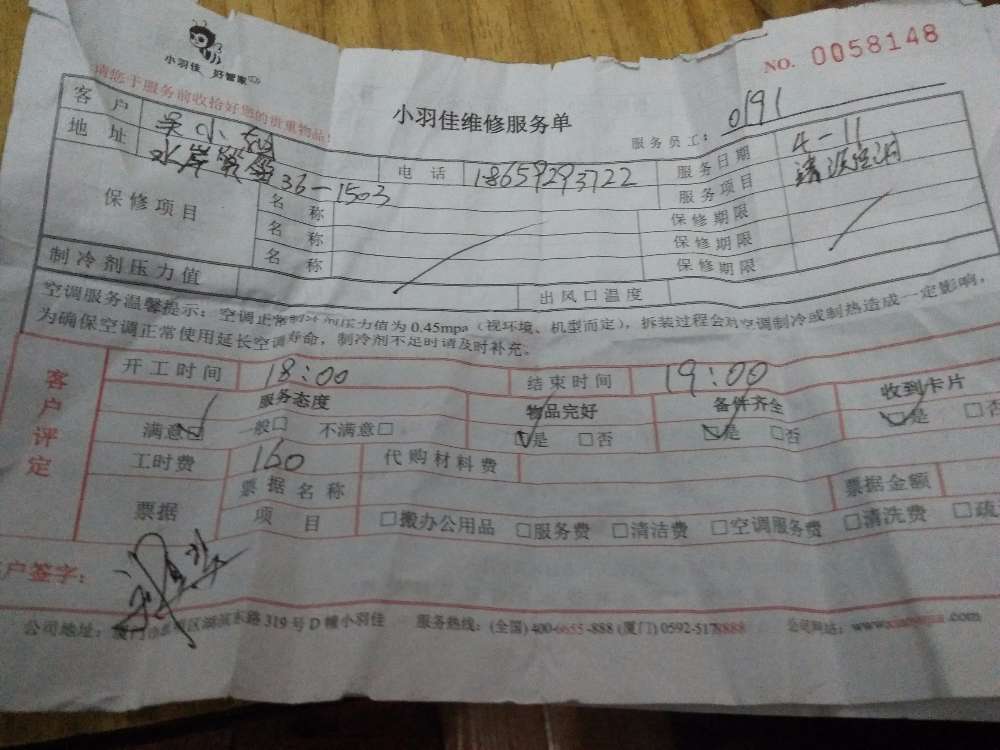 小羽佳 好管家
NO. 0058148
请您于服务前收拾好您的贵重物品!
小羽佳维修服务单
服务员工: 0191
客户 吴小
电话 18659293722
服务日期 4-11
地址 水岸 36-1503
服务项目 清洗空调
保修项目
名称 保修期限
名称 保修期限
名称 保修期限
制冷剂压力值
出风口温度
空调服务温馨提示: 空调正常制冷剂压力值为 0.45mpa (视环境、机型而定), 拆装过程会对空调制冷或制热造成一定影响,
为确保空调正常使用延长空调寿命, 制冷剂不足时请及时补充。
客户评定
开工时间 18:00
结束时间 19:00
服务态度 物品完好 备件齐全 收到卡片
满意☑ 一般□ 不满意□ ☑是 □否 ☑是 □否 ☑是 □否
工时费 160 代购材料费
票据 票据名称 票据金额
项目 □搬办公用品 □服务费 □清洁费 □空调服务费 □清洗费 □疏
户签字:
公司地址: 厦门市 区湖滨东路 319 号 D 幢小羽佳
服务热线: (全国) 400-6655-888 (厦门) 0592-5178888
公司网址: www. .com